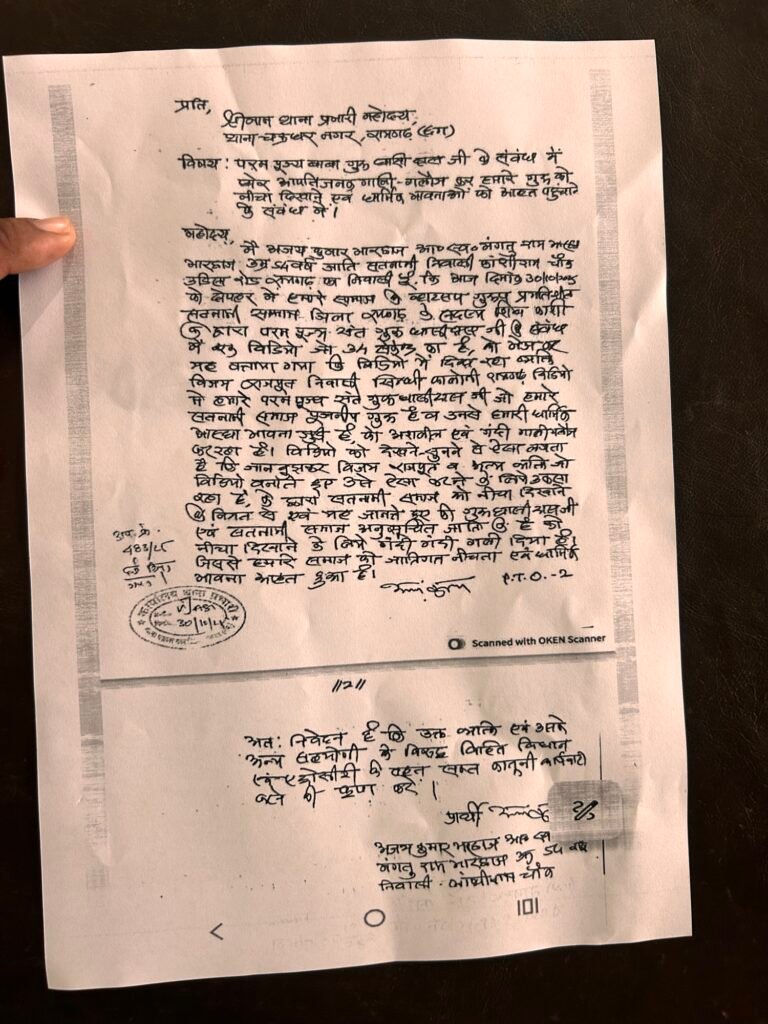 प्रति,
श्रीमान थाना प्रभारी महोदय,
थाना-चक्रधर नगर, रायगढ़ (छग)
विषय: परम पूज्य बाबा गुरु घासी दास जी के संबंध में
घोर आपत्तिजनक गाली-गलौज कर हमारे गुरु को
नीचा दिखाने एवं धार्मिक भावनाओं को आहत पहुंचाने
के संबंध में।
महोदय,
मैं अजय कुमार भारद्वाज आ० स्व० मंगतु राम
भारद्वाज उम्र 54 वर्ष जाति सतनामी निवासी कांशीराम चौक
उड़िसा रोड रायगढ़ का निवासी हूँ, कि आज दिनांक 30/10/2025
को दोपहर में हमारे समाज के व्हाटसप ग्रुप प्रगतिशील
सतनामी समाज जिला रायगढ़ के सदस्य
के द्वारा परम पूज्य संत गुरु घासीदास जी के संबंध
में एक विडियो जो 34 सेकेण्ड का है, को भेजकर
यह बताया गया कि विडियो में दिख रहा व्यक्ति
विजय राजपूत निवासी सिन्धी कालोनी रायगढ़ विडियो
में हमारे परम पूज्य संत गुरु घासीदास जी जो हमारे
सतनामी समाज पूजनीय गुरु है व उनसे हमारी धार्मिक
आस्था भावना जुड़ी है, को अश्लील एवं गंदी गाली गलौज
कर रहा है। विडियो को देखने-सुनने से ऐसा लगता
है कि जानबुझकर विजय राजपूत व अन्य व्यक्ति जो
विडियो बनाते हुए उसे ऐसा करने के लिये उकसा
रहा है, के द्वारा सतनामी समाज को नीचा दिखाने
के नियत से एवं यह जानते हुए की गुरु घासीदास जी
एवं सतनामी समाज अनुसूचित जाति के है को
नीचा दिखाने के लिये गंदी गंदी गाली दिया है।
जिससे हमारे समाज को जातिगत नीचता एवं धार्मिक
भावना आहत हुआ है।
P.T.O.-2
अप. क्र.
483/25
30/10/25
Scanned with OKEN Scanner
//2//
अतः निवेदन है कि उक्त व्यक्ति एवं उसके
अन्य सहयोगी के विरुद्ध विहित विधान
एवं एट्रोसीटी के तहत सख्त कानूनी कार्यवाही
करने की कृपा करें।
प्रार्थी
2/5
अजय कुमार भारद्वाज आ० स्व
मंगतु राम भारद्वाज उम्र 54 वर्ष
निवासी - कांशीराम चौक